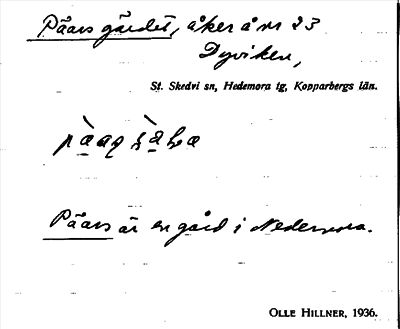 Päars gärdet, åker å nr 23
Dyviken,
St. Skedvi sn, Hedemora tg, Kopparbergs län.
Päars är en gård i Nedernora.
OLLE HILLNER, 1936.